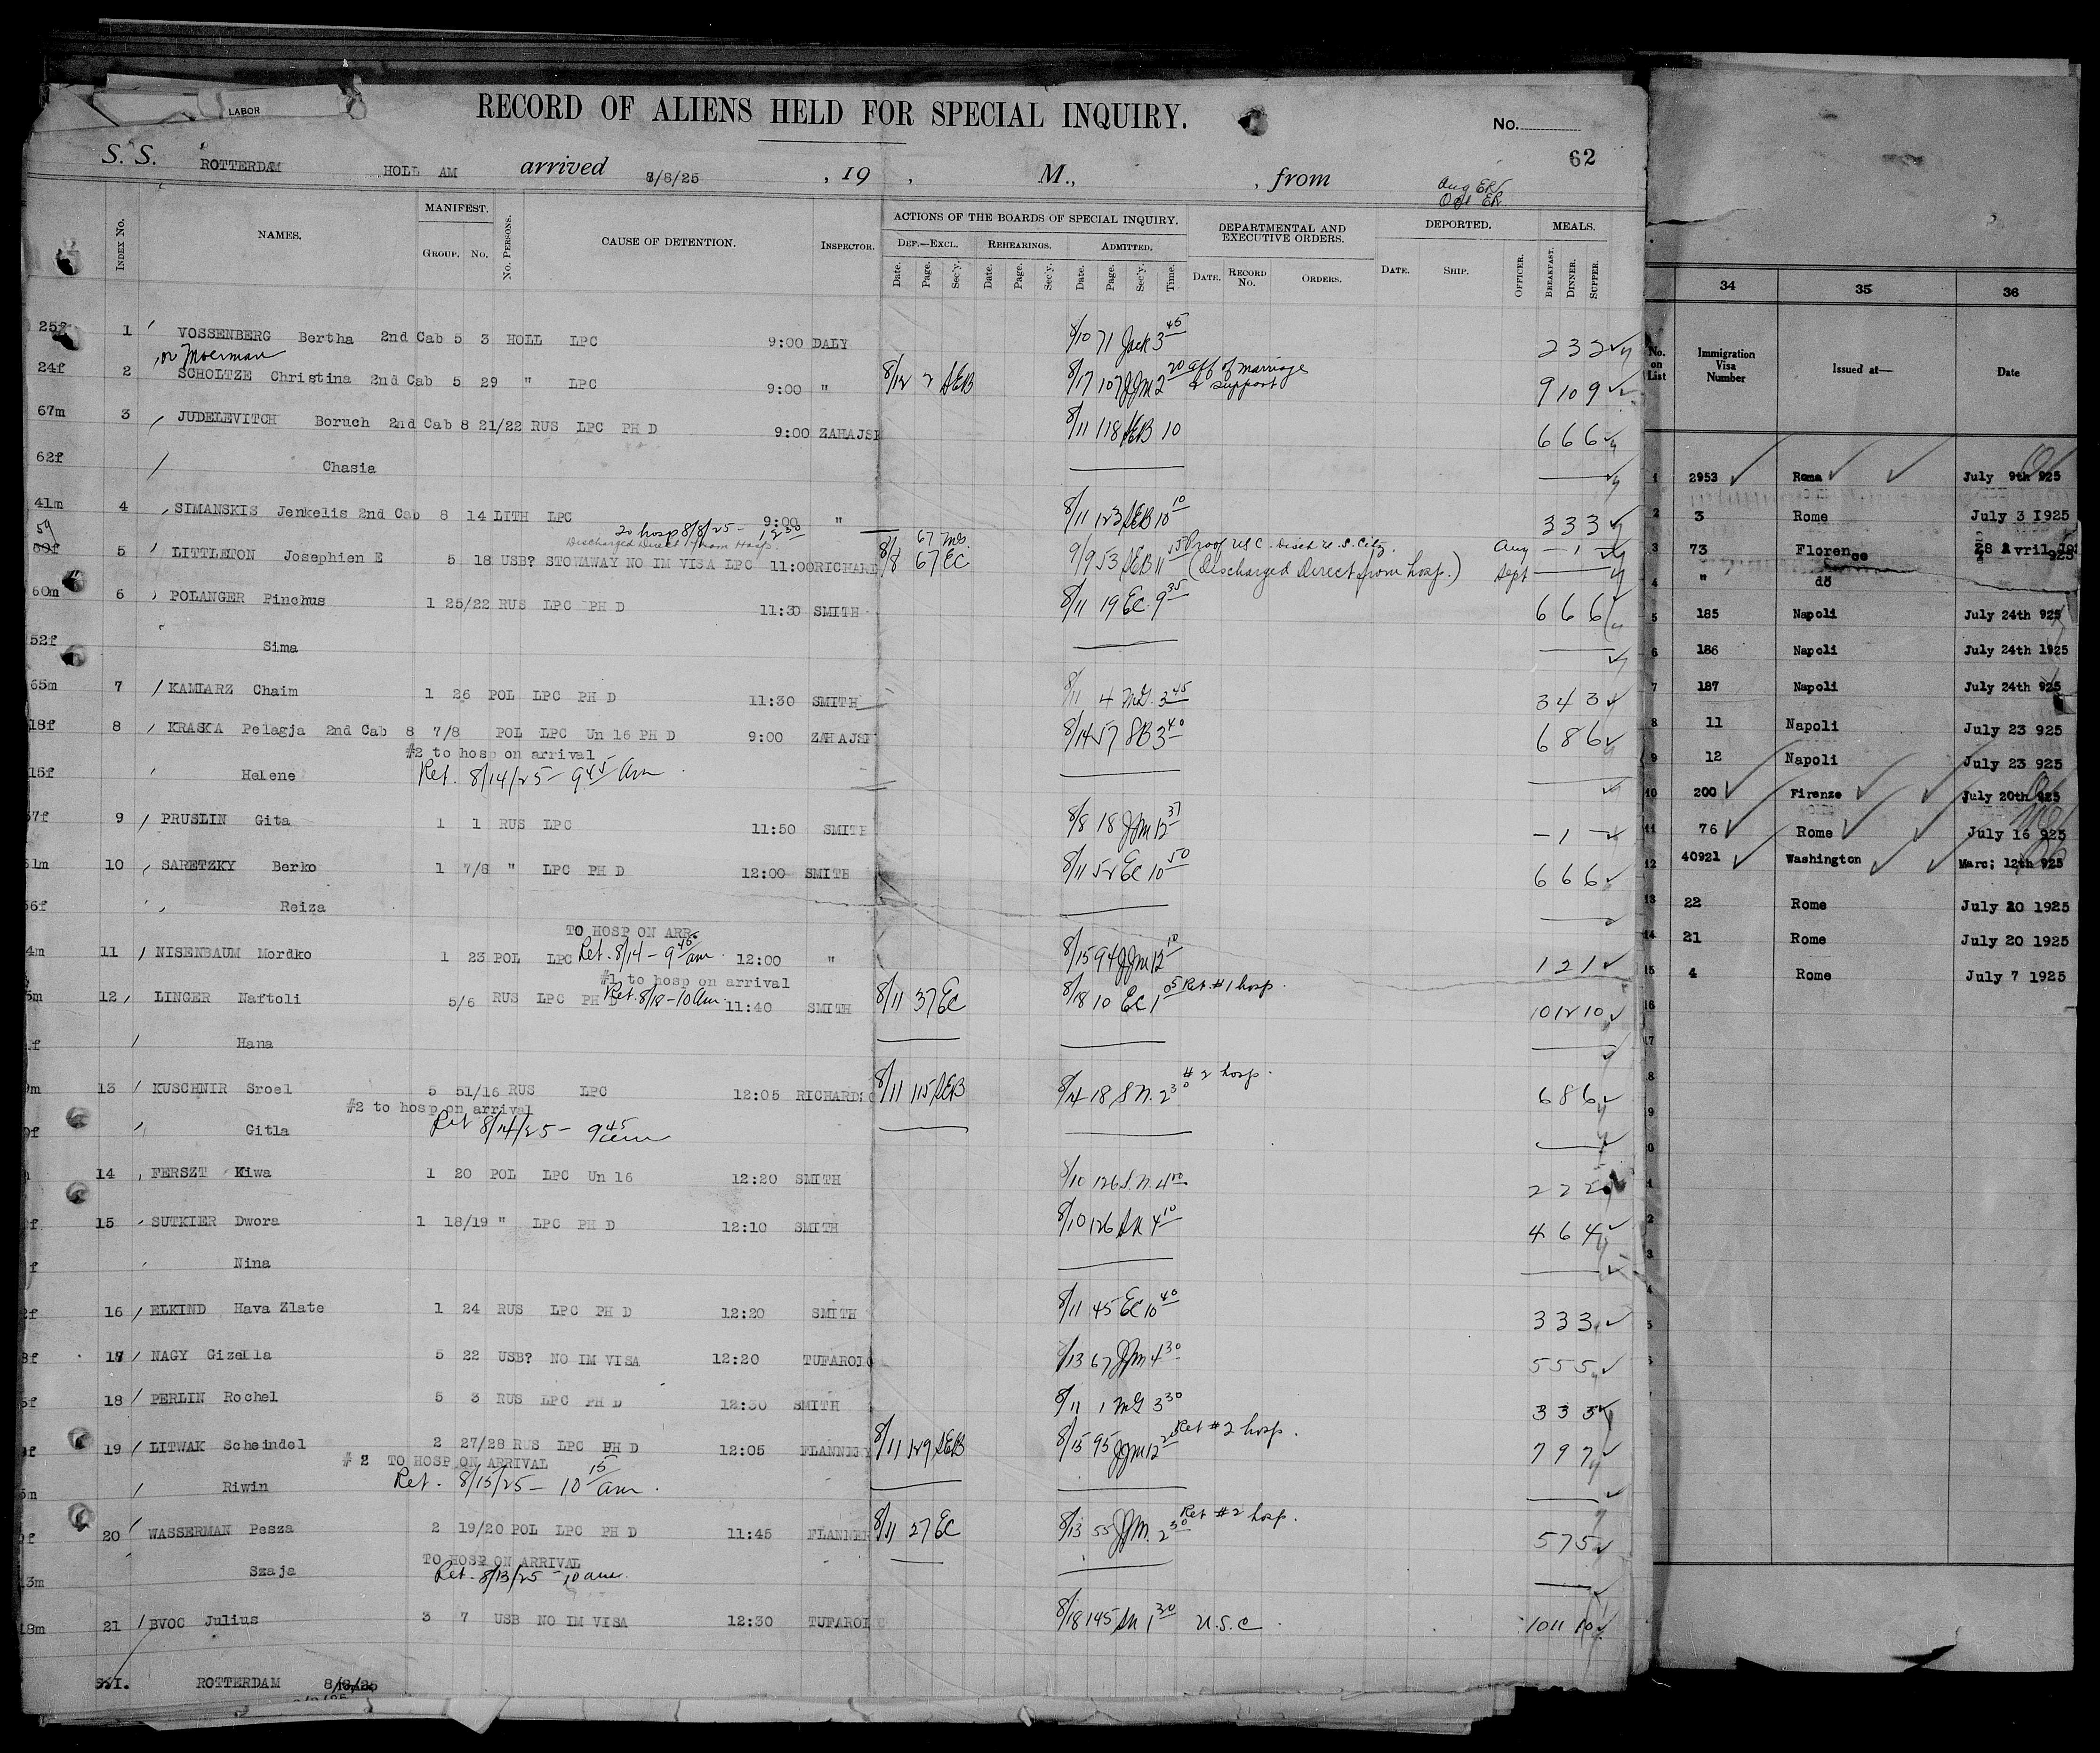 LABOR
RECORD OF ALIENS HELD FOR SPECIAL INQUIRY.
No.
62
S. S. ROTTERDAM HOLL AM arrived 8/8/25 , 19 , M., , from
INDEX No. NAMES. MANIFEST. GROUP. No. No. PERSONS. CAUSE OF DETENTION. INSPECTOR. ACTIONS OF THE BOARDS OF SPECIAL INQUIRY. DEF.—EXCL. Date. Page. Sec'y. REHEARINGS. Date. Page. Sec'y. ADMITTED. Date. Page. Sec'y. Time. DEPARTMENTAL AND EXECUTIVE ORDERS. DATE. RECORD No. ORDERS. DEPORTED. DATE. SHIP. OFFICER. MEALS. BREAKFAST. DINNER. SUPPER.
25f 1 VOSSENBERG Bertha 2nd Cab 5 3 HOLL LPC 9:00 DALY 8/10 71 Jack 3 45 2 3 2
or Moerman
24f 2 SCHOLTZE Christina 2nd Cab 5 29 " LPC 9:00 " 8/12 2 AEB 8/17 107 JJM 2 20 aff of marriage & support 9 10 9
67m 3 JUDELEVITCH Boruch 2nd Cab 8 21/22 RUS LPC PH D 9:00 ZAHAJSK 8/11 118 AEB 10 6 6 6
62f Chasia
41m 4 SIMANSKIS Jenkelis 2nd Cab 8 14 LITH LPC 9:00 " 8/11 123 AEB 10 10 3 3 3
To hosp 8/8/25 - 12 30
Discharged Direct from Hosp.
59 5 LITTLETON Josephien E 5 18 USB? STOWAWAY NO IM VISA LPC 11:00 RICHARD 8/8 67 EC 9/9 53 AEB 11 Proof USC. (Discharged Direct from hosp.) Aug — 1 — Sept
60m 6 POLANGER Pinchus 1 25/22 RUS LPC PH D 11:30 SMITH 8/11 19 EC 9 35 6 6 6
52f Sima
65m 7 KAMIARZ Chaim 1 26 POL LPC PH D 11:30 SMITH 8/11 4 MG 3 45 3 4 3
18f 8 KRASKA Pelagja 2nd Cab 8 7/8 POL LPC Un 16 PH D 9:00 ZAHAJSK 8/14 57 SB 3 40 6 8 6
#2 to hosp on arrival
15f Helene Ret. 8/14/25 - 9 45 am
57f 9 PRUSLIN Gita 1 1 RUS LPC 11:50 SMITH 8/8 18 JJM 12 37 — 1 —
51m 10 SARETZKY Berko 1 7/8 " LPC PH D 12:00 SMITH 8/11 52 EC 10 50 6 6 6
56f Reiza
TO HOSP ON ARR.
4m 11 NISENBAUM Mordko 1 23 POL LPC Ret. 8/14 - 9 45 am. 12:00 " 8/15 94 JJM 12 10 1 2 1
#1 to hosp on arrival
12 LINGER Naftoli 5/6 RUS LPC PH D Ret. 8/18 - 10 am. 11:40 SMITH 8/11 37 EC 8/18 10 EC 1 05 Ret #1 hosp. 10 12 10
f Hana
m 13 KUSCHNIR Sroel 5 51/16 RUS LPC 12:05 RICHARDSO 8/11 115 AEB 8/14 18 S N. 2 30 #2 hosp. 6 8 6
#2 to hosp on arrival
f Gitla Ret 8/14/25 - 9 45 am
14 FERSZT Kiwa 1 20 POL LPC Un 16 12:20 SMITH 8/10 126 S.N. 4 10 2 2 2
f 15 SUTKIER Dwora 1 18/19 " LPC PH D 12:10 SMITH 8/10 126 SN 4 10 4 6 4
f Nina
f 16 ELKIND Hava Zlate 1 24 RUS LPC PH D 12:20 SMITH 8/11 45 EC 10 40 3 3 3
f 17 NAGY Gizella 5 22 USB? NO IM VISA 12:20 TUFAROLO 8/13 67 JJM 4 30 5 5 5
f 18 PERLIN Rochel 5 3 RUS LPC PH D 12:30 SMITH 8/11 1 MG 3 30 3 3 3
f 19 LITWAK Scheindel 2 27/28 RUS LPC PH D 12:05 FLANNERY 8/11 129 AEB 8/15 95 JJM 12 20 Ret #2 hosp. 7 9 7
# 2 TO HOSP ON ARRIVAL
m Riwin Ret. 8/15/25 - 10 15 am.
f 20 WASSERMAN Pesza 2 19/20 POL LPC PH D 11:45 FLANNER 8/11 27 EC 8/13 55 JJM. 2 30 Ret #2 hosp. 5 7 5
TO HOSP ON ARRIVAL
13m Szaja Ret. 8/13/25 - 10 am.
18m 21 BVOC Julius 3 7 USB NO IM VISA 12:30 TUFAROLO 8/18 145 SN 1 30 U.S.C 10 11 10
S.I. ROTTERDAM
34 35 36
No. on List Immigration Visa Number Issued at— Date
1 2953 Roma July 9th 925
2 3 Rome July 3 1925
3 73 Florence 28 Avril 1925
4 " dô
5 185 Napoli July 24th 925
6 186 Napoli July 24th 1925
7 187 Napoli July 24th 925
8 11 Napoli July 23 925
9 12 Napoli July 23 925
10 200 Firenze July 20th 925
11 76 Rome July 16 925
12 40921 Washington Marc; 12th 925
13 22 Rome July 20 1925
14 21 Rome July 20 1925
15 4 Rome July 7 1925
16
17
8
9
0
1
2
3
4
5